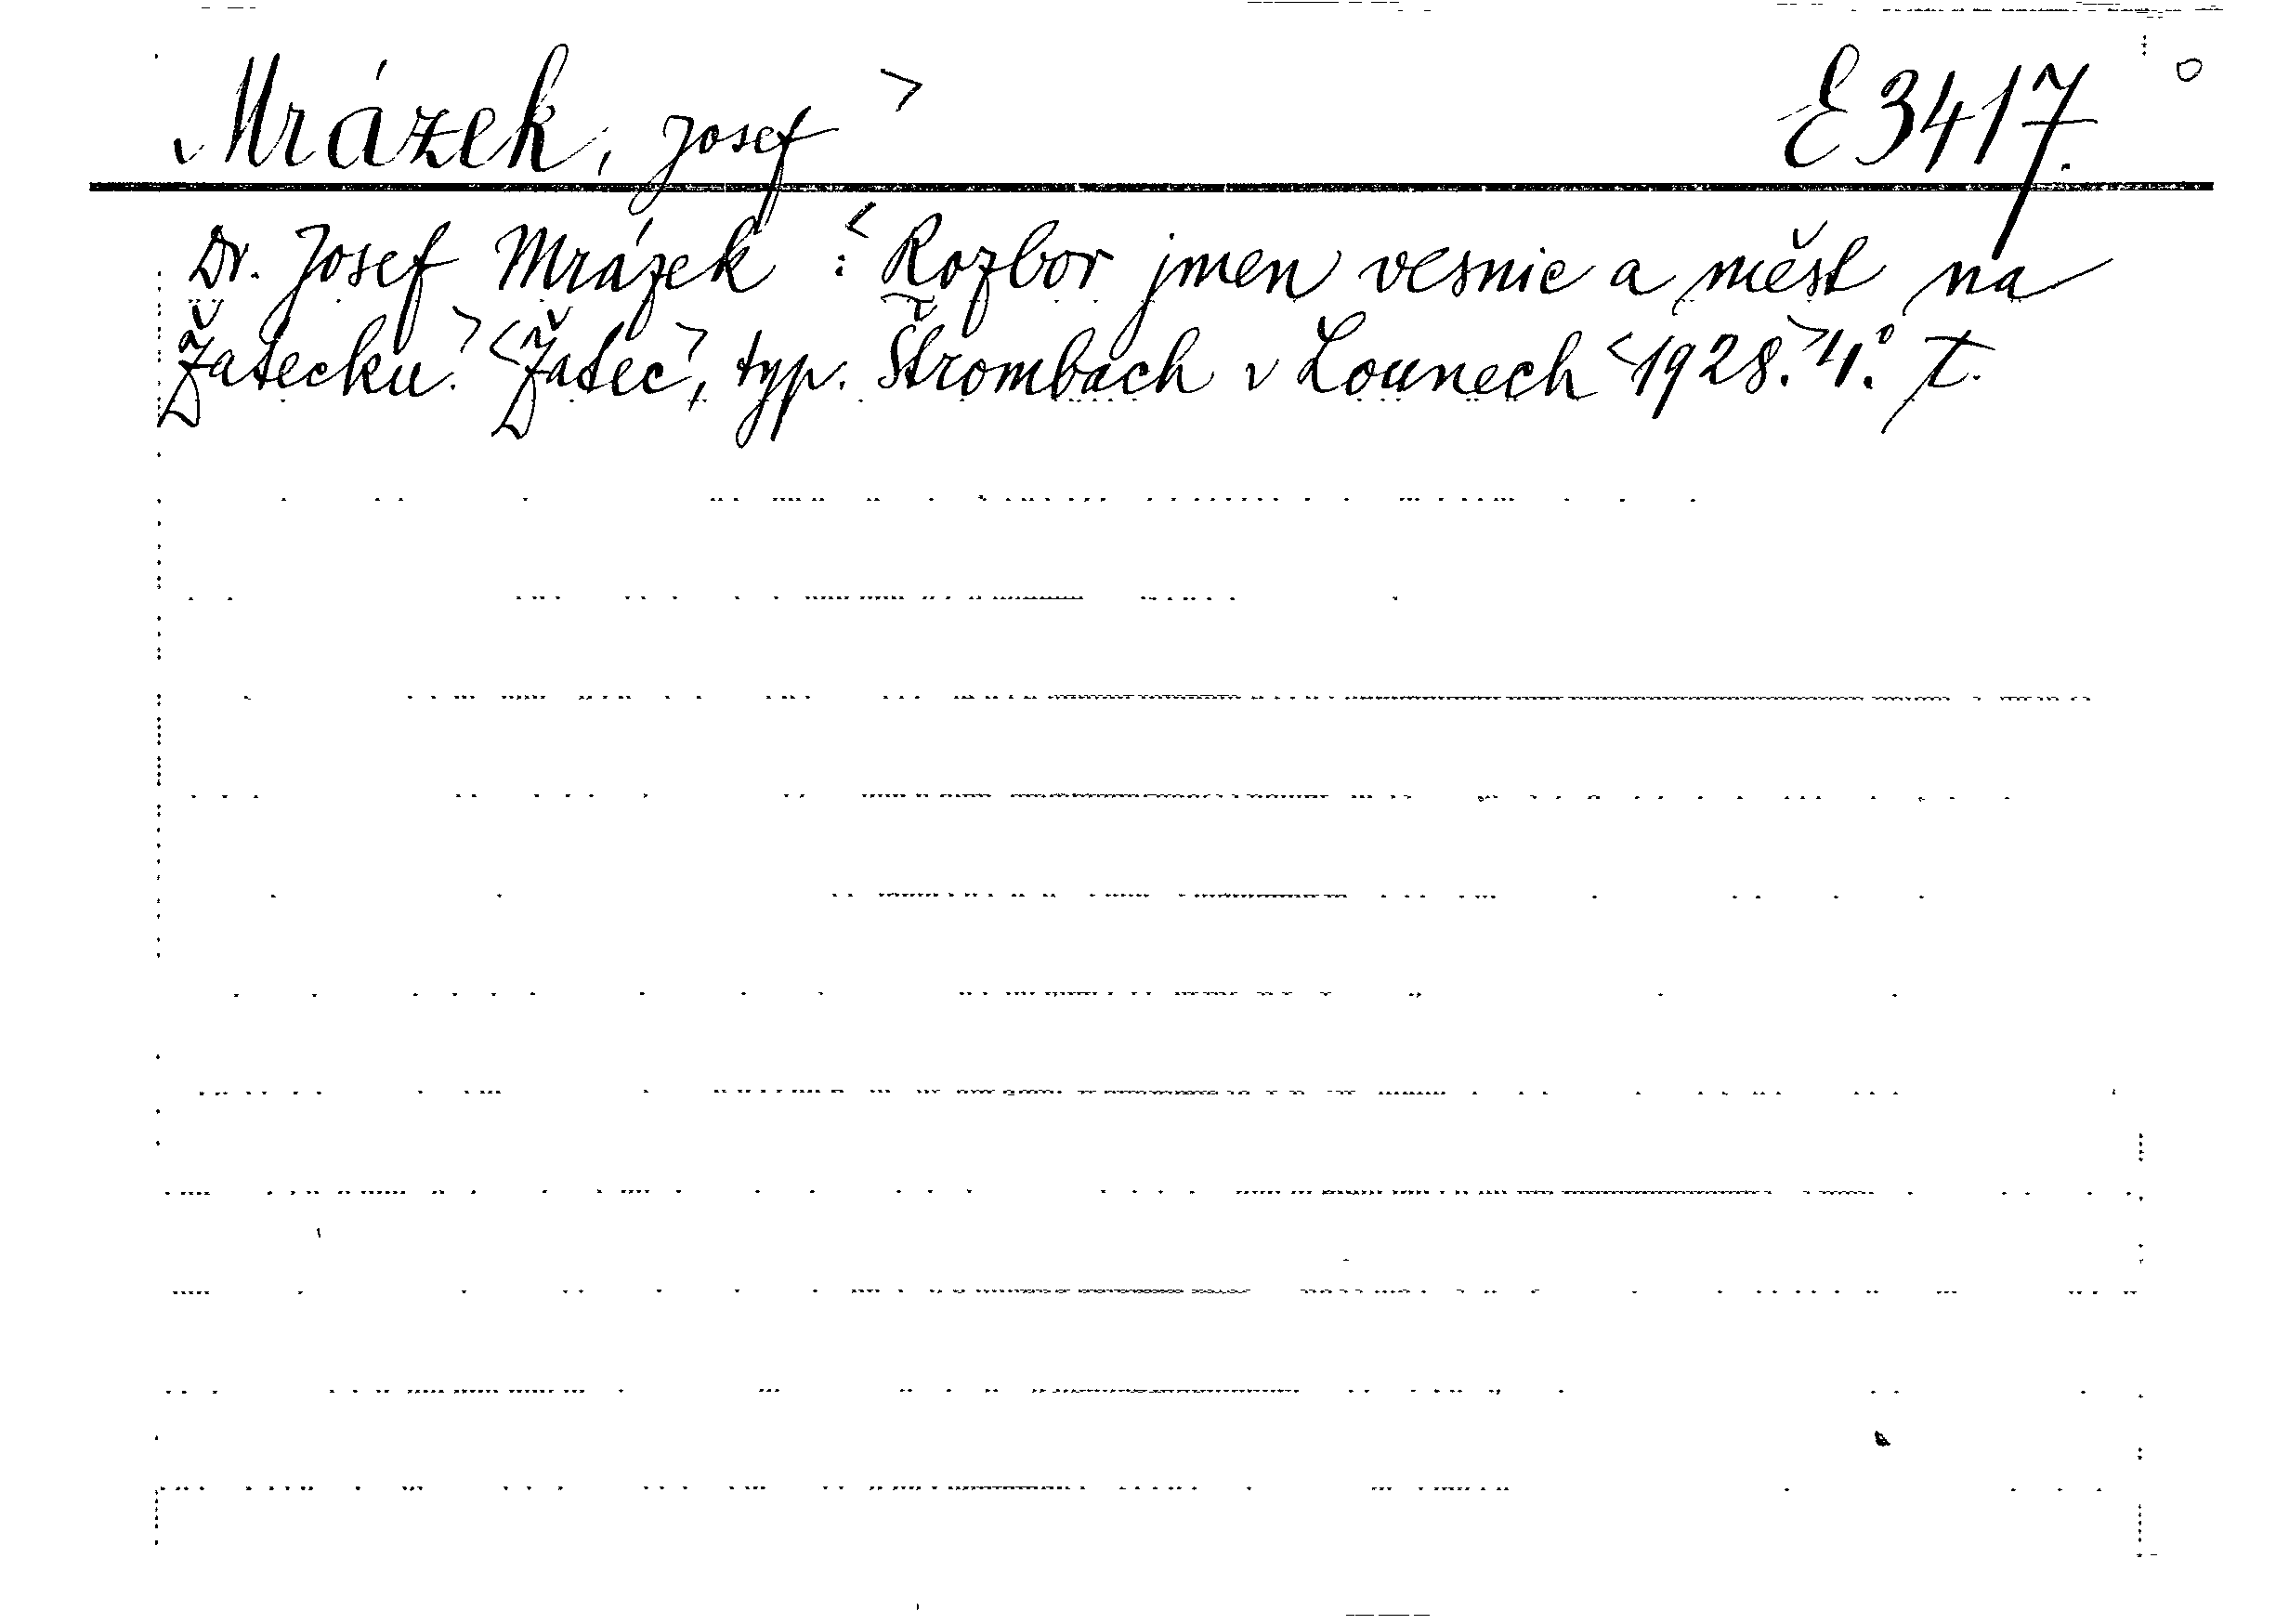 Mrázek, Josef > E 3417.
Dr. Josef Mrázek : < Rozbor jmen vesnic a měst na
Žatecku. > < Žatec >, typ. Štrombach v Lounech < 1928. > 4.° T.